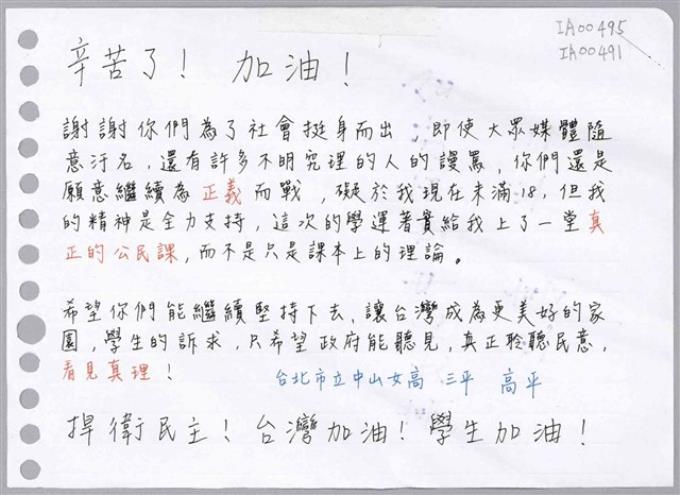 IA00495
IA00491
辛苦了! 加油!
謝謝你們為了社會挺身而出,即使大眾媒體隨
意汙名,還有許多不明究理的人的謾罵,你們還是
願意繼續為正義而戰,礙於我現在未滿18,但我
的精神是全力支持,這次的學運著實給我上了一堂真
正的公民課,而不是只是課本上的理論。
希望你們能繼續堅持下去,讓台灣成為更美好的家
園,學生的訴求,只希望政府能聽見,真正聆聽民意,
看見真理!
台北市立中山女高 三平 高平
捍衛民主! 台灣加油! 學生加油!